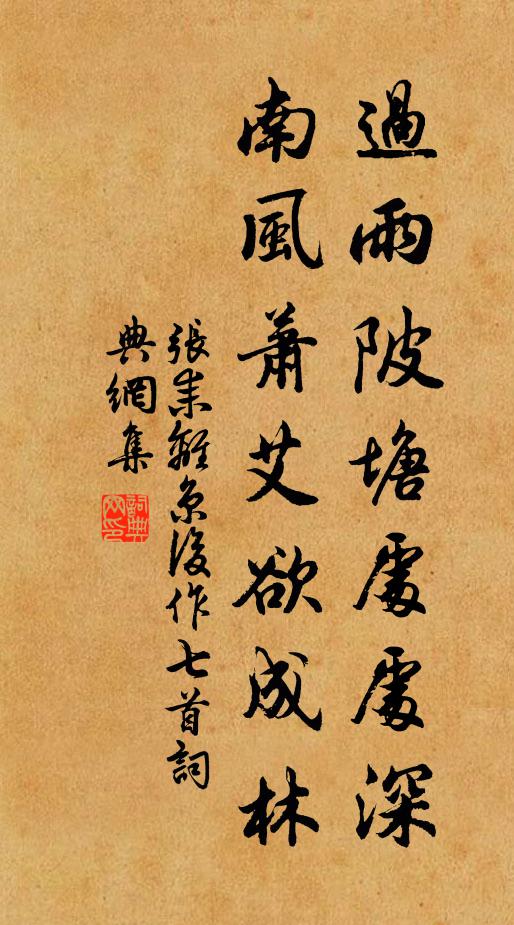 過雨陂塘處處深
南風蕭艾欲成林
張耒離京後作七首詞
典網集
詞典
网印